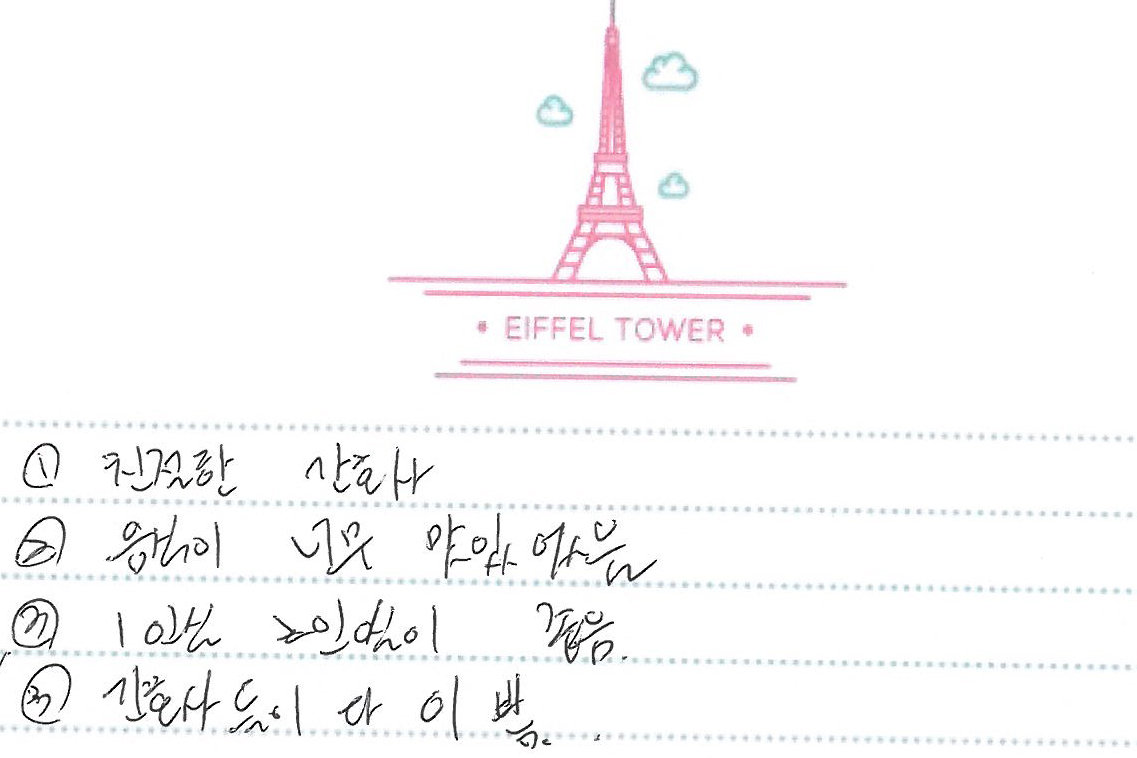 • EIFFEL TOWER •
① 친절한 간호사
② 음식이 너무
1인실 2인실이 좁음.
간호사들이 다 이쁨.